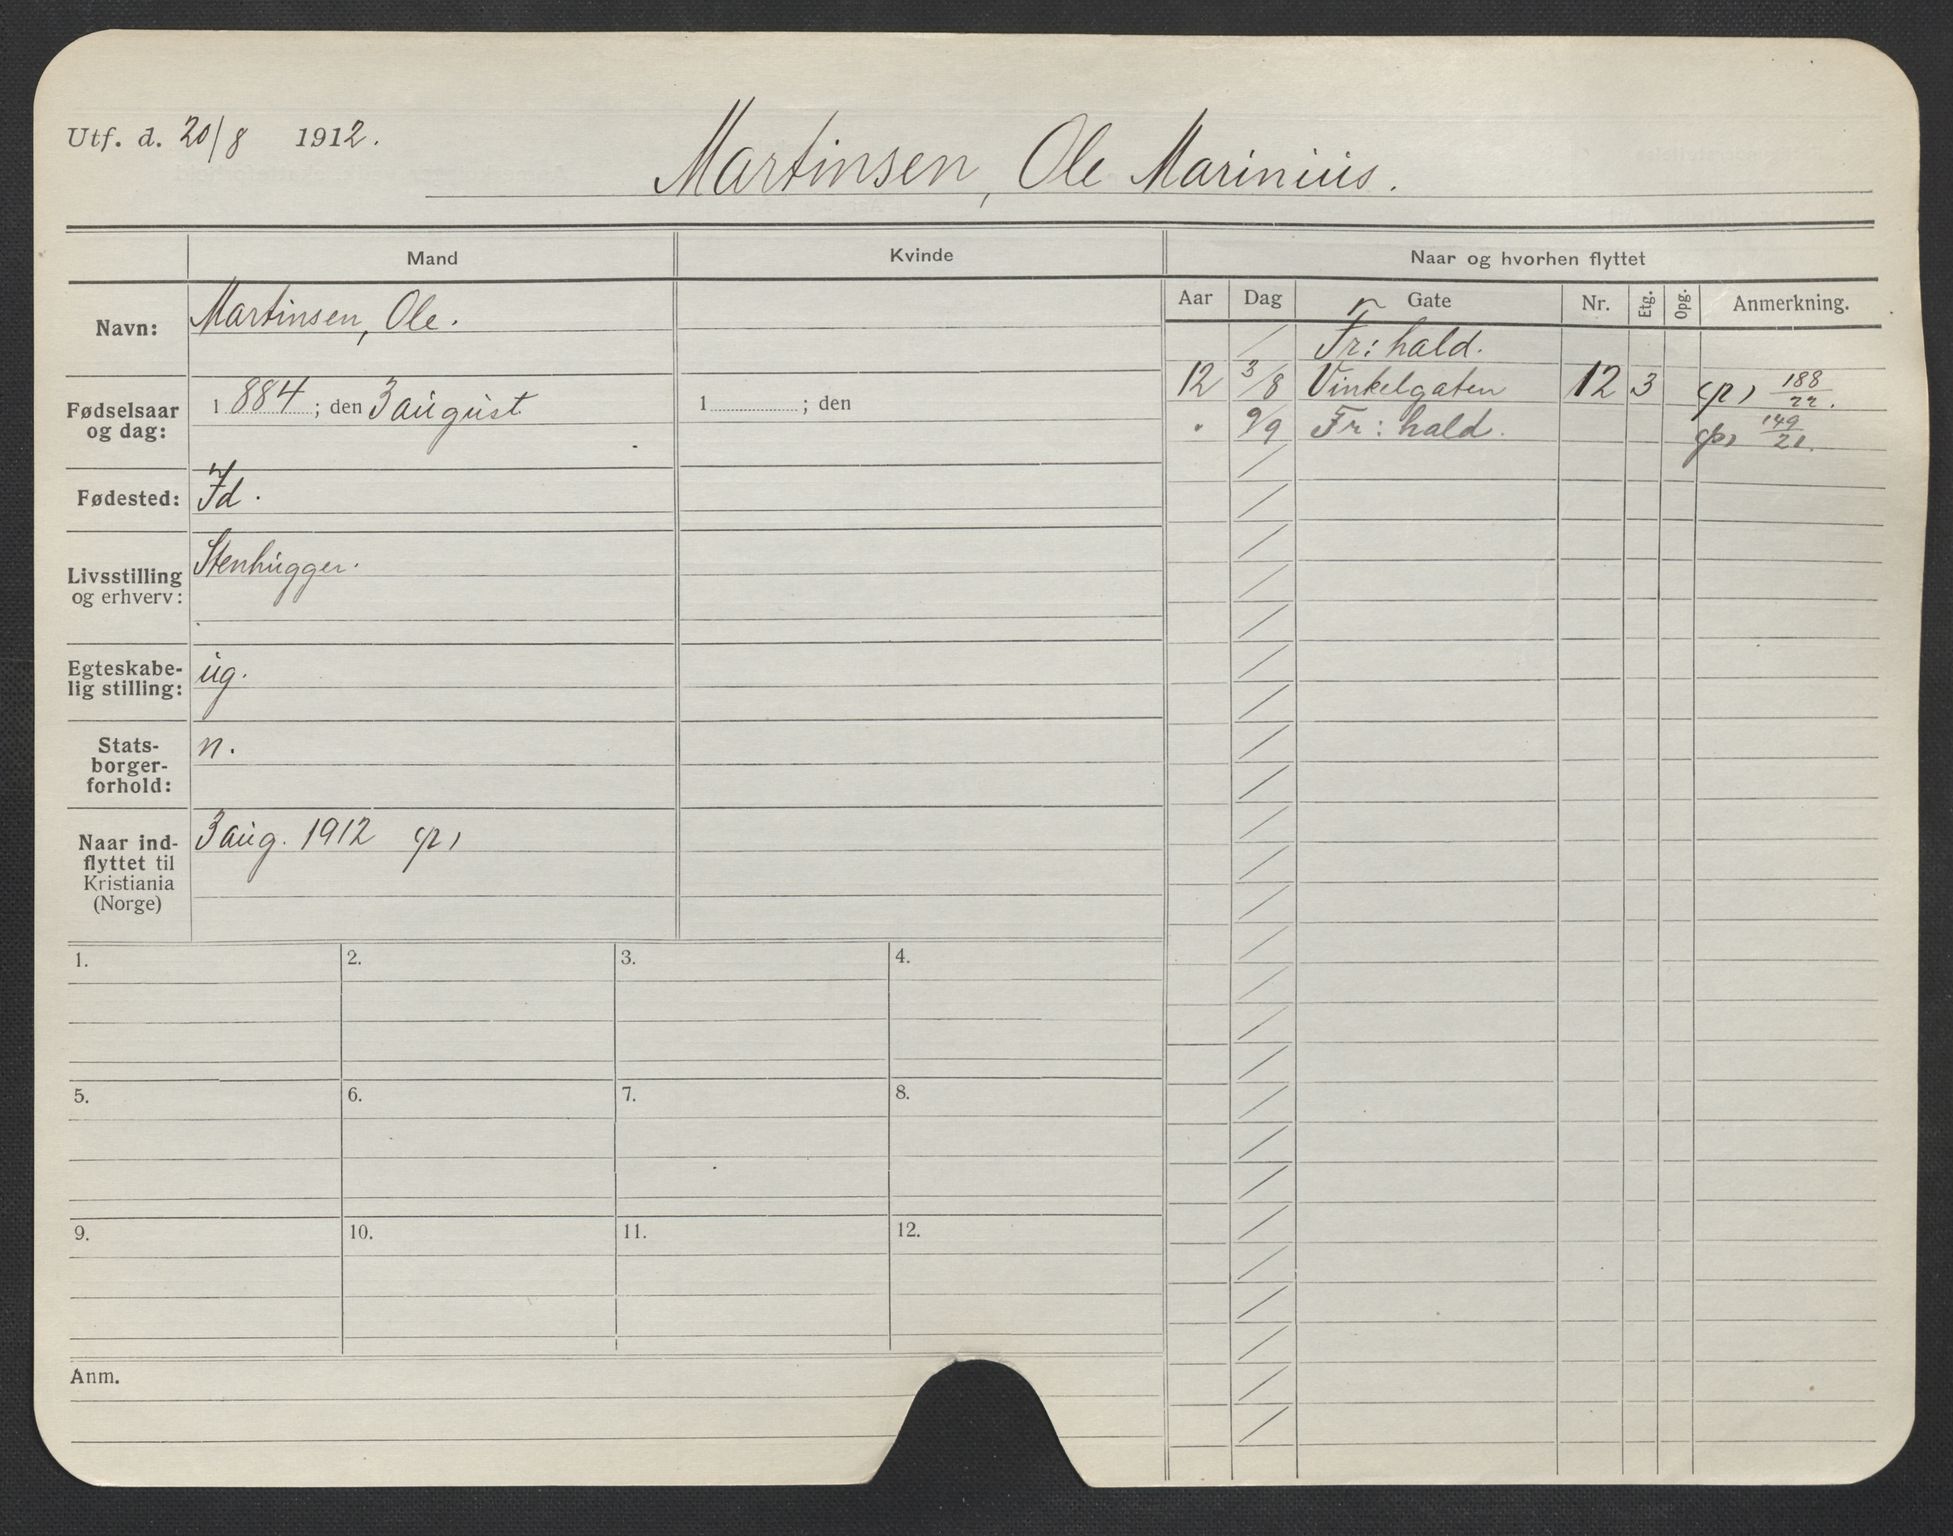 Utf. d. 20/8 1912.
Martinsen, Ole Marinius.
Mand Kvinde Naar og hvorhen flyttet
Navn: Martinsen, Ole.
Fødselsaar og dag: 1884; den 3 august 1 ; den
Fødested: Id.
Livsstilling og erhverv: Stenhugger.
Egteskabe-
lig stilling: ug.
Stats-
borger-
forhold: n.
Naar ind-
flyttet til
Kristiania
(Norge) 3 aug. 1912 (p)
Aar Dag Gate Nr. Etg. Opg. Anmerkning.
Fr: hald.
12 3/8 Vinkelgaten 12 3 (p) 188/22.
" 9/9 Fr: hald. (p) 149/21.
1. 2. 3. 4.
5. 6. 7. 8.
9. 10. 11. 12.
Anm.